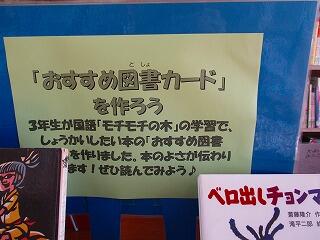 としょ
「おすすめ図書カード」
を作ろう
3年生が国語「モチモチの木」の学習で、
しょうかいしたい本の「おすすめ図書
を作りました。本のよさが伝わり
ます！ぜひ読んでみよう♪
ベロ出しチョンマ
斎藤隆介 作
滝平二郎 絵